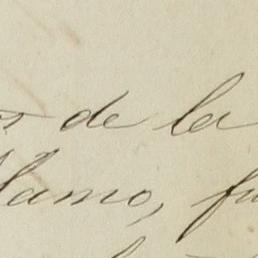 de la
lamo, fu